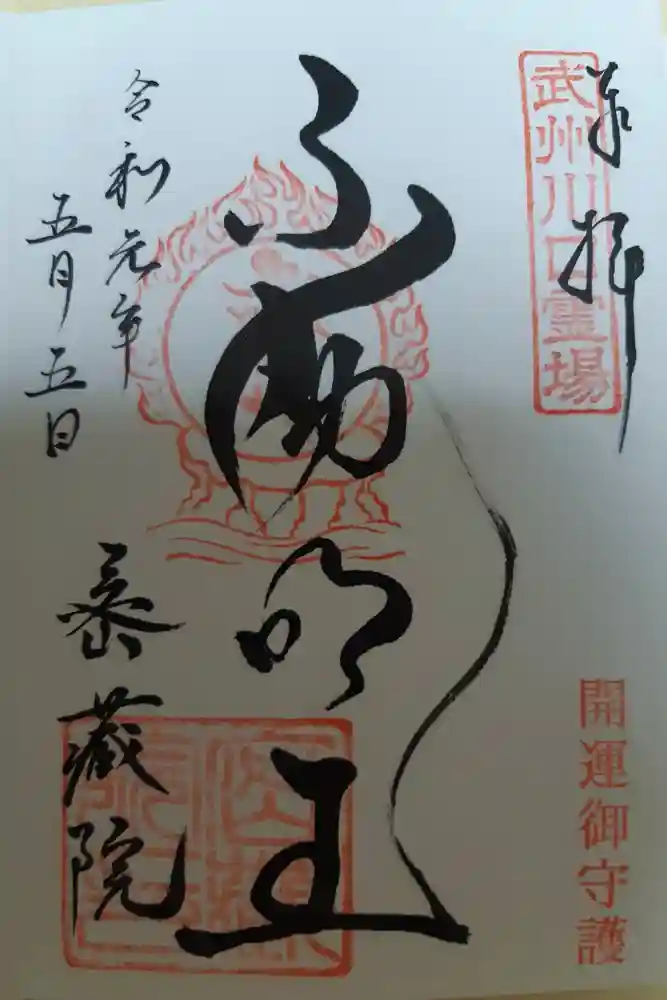 奉拝
武州川口霊場
開運御守護
不動明王
令和元年
五月五日
密蔵院